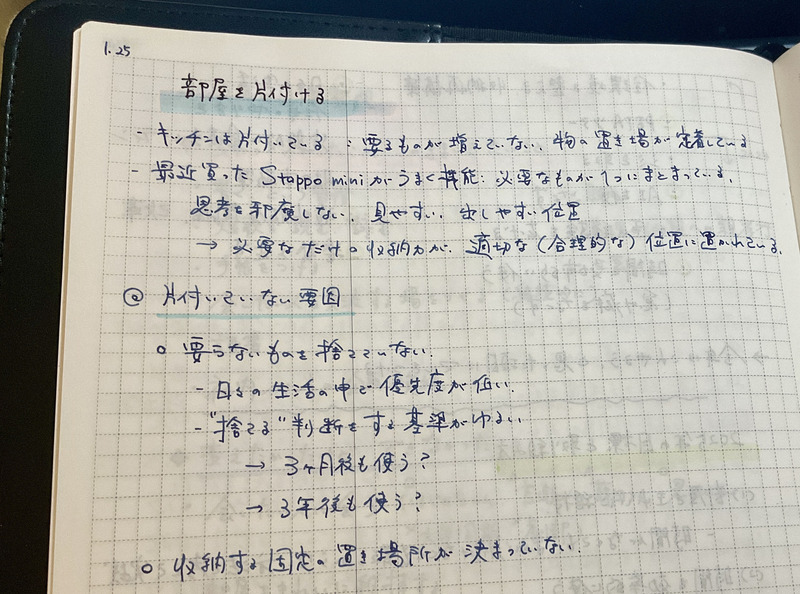 1.25
部屋を片付ける
- キッチンは片付いている : 要るものが増えていない、物の置き場が定着している
- 最近買った Stappo mini がうまく機能: 必要なものが1つにまとまっている。
思考を邪魔しない、見やすい、出しやすい位置
→ 必要なだけの収納力が、適切な(合理的な)位置に置かれている。
@ 片付いていない要因
○ 要らないものを捨てていない。
- 日々の生活の中で優先度が低い。
- "捨てる"判断をする基準がゆるい
→ 3ヶ月後も使う?
→ 3年後も使う?
○ 収納する固定の置き場所が決まっていない。